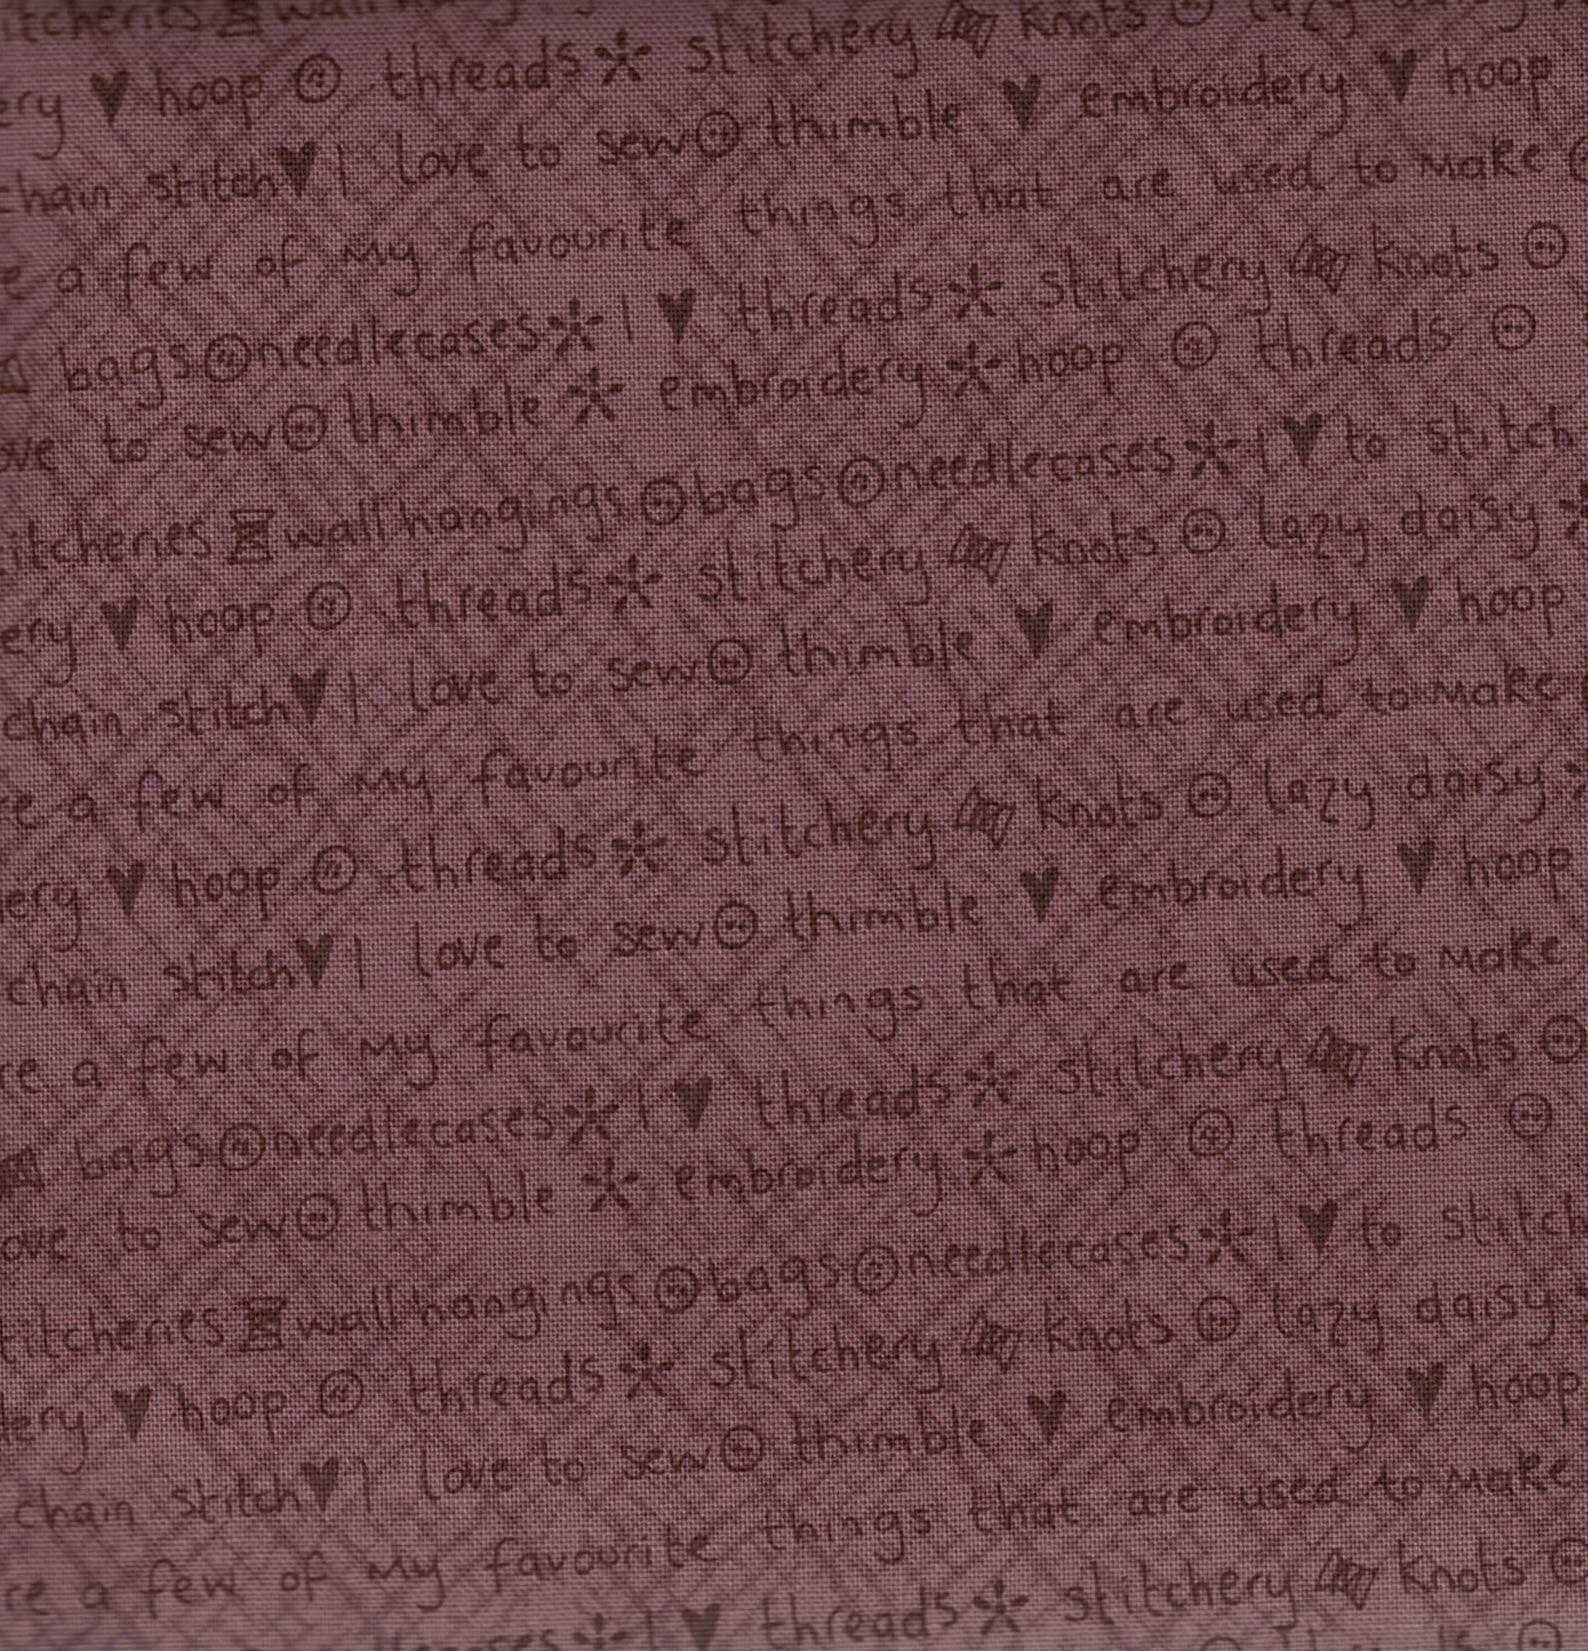 stitcheries wall knots lazy daisy
ery hoop threads stitchery knots lazy daisy
chain stitch I love to sew thimble embroidery hoop
a few of my favourite things that are used to make
bags needlecases I threads stitchery knots
love to sew thimble embroidery hoop threads
stitcheries wall hangings bags needlecases I to stitch
ery hoop threads stitchery knots lazy daisy
chain stitch I love to sew thimble embroidery hoop
re a few of my favourite things that are used to make
ery hoop threads stitchery knots lazy daisy
chain stitch I love to sew thimble embroidery hoop
re a few of my favourite things that are used to make
bags needlecases I threads stitchery knots
ove to sew thimble embroidery hoop threads
titcheries wall hangings bags needlecases I to stitch
dery hoop threads stitchery knots lazy daisy
chain stitch I love to sew thimble embroidery hoop
re a few of my favourite things that are used to make
I threads stitchery knots